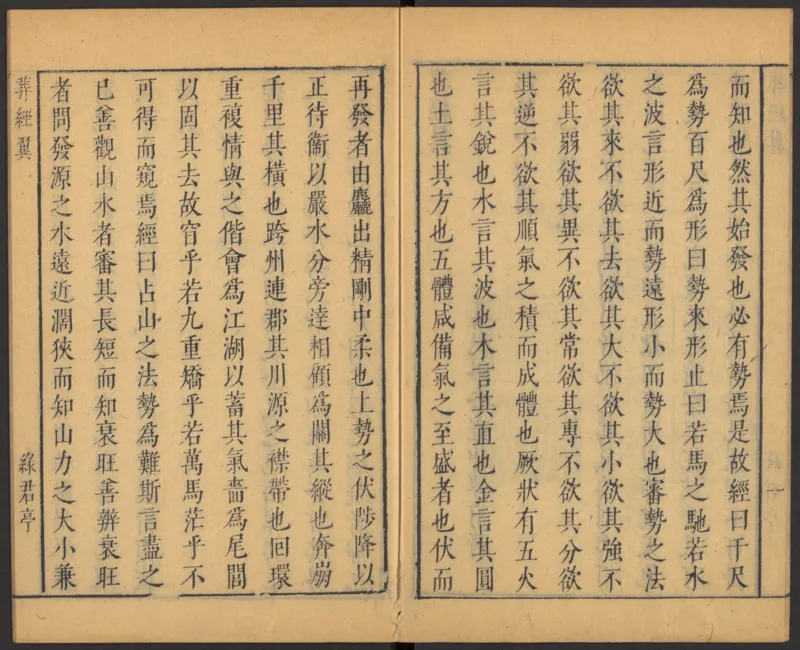 而知也然其始發也必有勢焉是故經曰千尺
爲勢百尺爲形曰勢來形止曰若馬之馳若水
之波言形近而勢遠形小而勢大也審勢之法
欲其來不欲其去欲其大不欲其小欲其強不
欲其弱欲其異不欲其常欲其專不欲其分欲
其逆不欲其順氣之積而成體也厥狀有五火
言其銳也水言其波也木言其直也金言其圓
也土言其方也五體咸備氣之至盛者也伏而
再發者由麤出精剛中柔也上勢之伏陟降以
正待衛以嚴水分旁達相顧爲關其縱也奔崩
千里其橫也跨州連郡其川源之襟帶也回環
重複情與之偕會爲江湖以蓄其氣嗇爲尾閭
以固其去故窅乎若九重矯乎若萬馬茫乎不
可得而窺焉經曰占山之法勢爲難斯言盡之
已善觀山水者審其長短而知衰旺善辨衰旺
者問發源之水遠近濶狹而知山力之大小兼
葬經翼
綠君亭